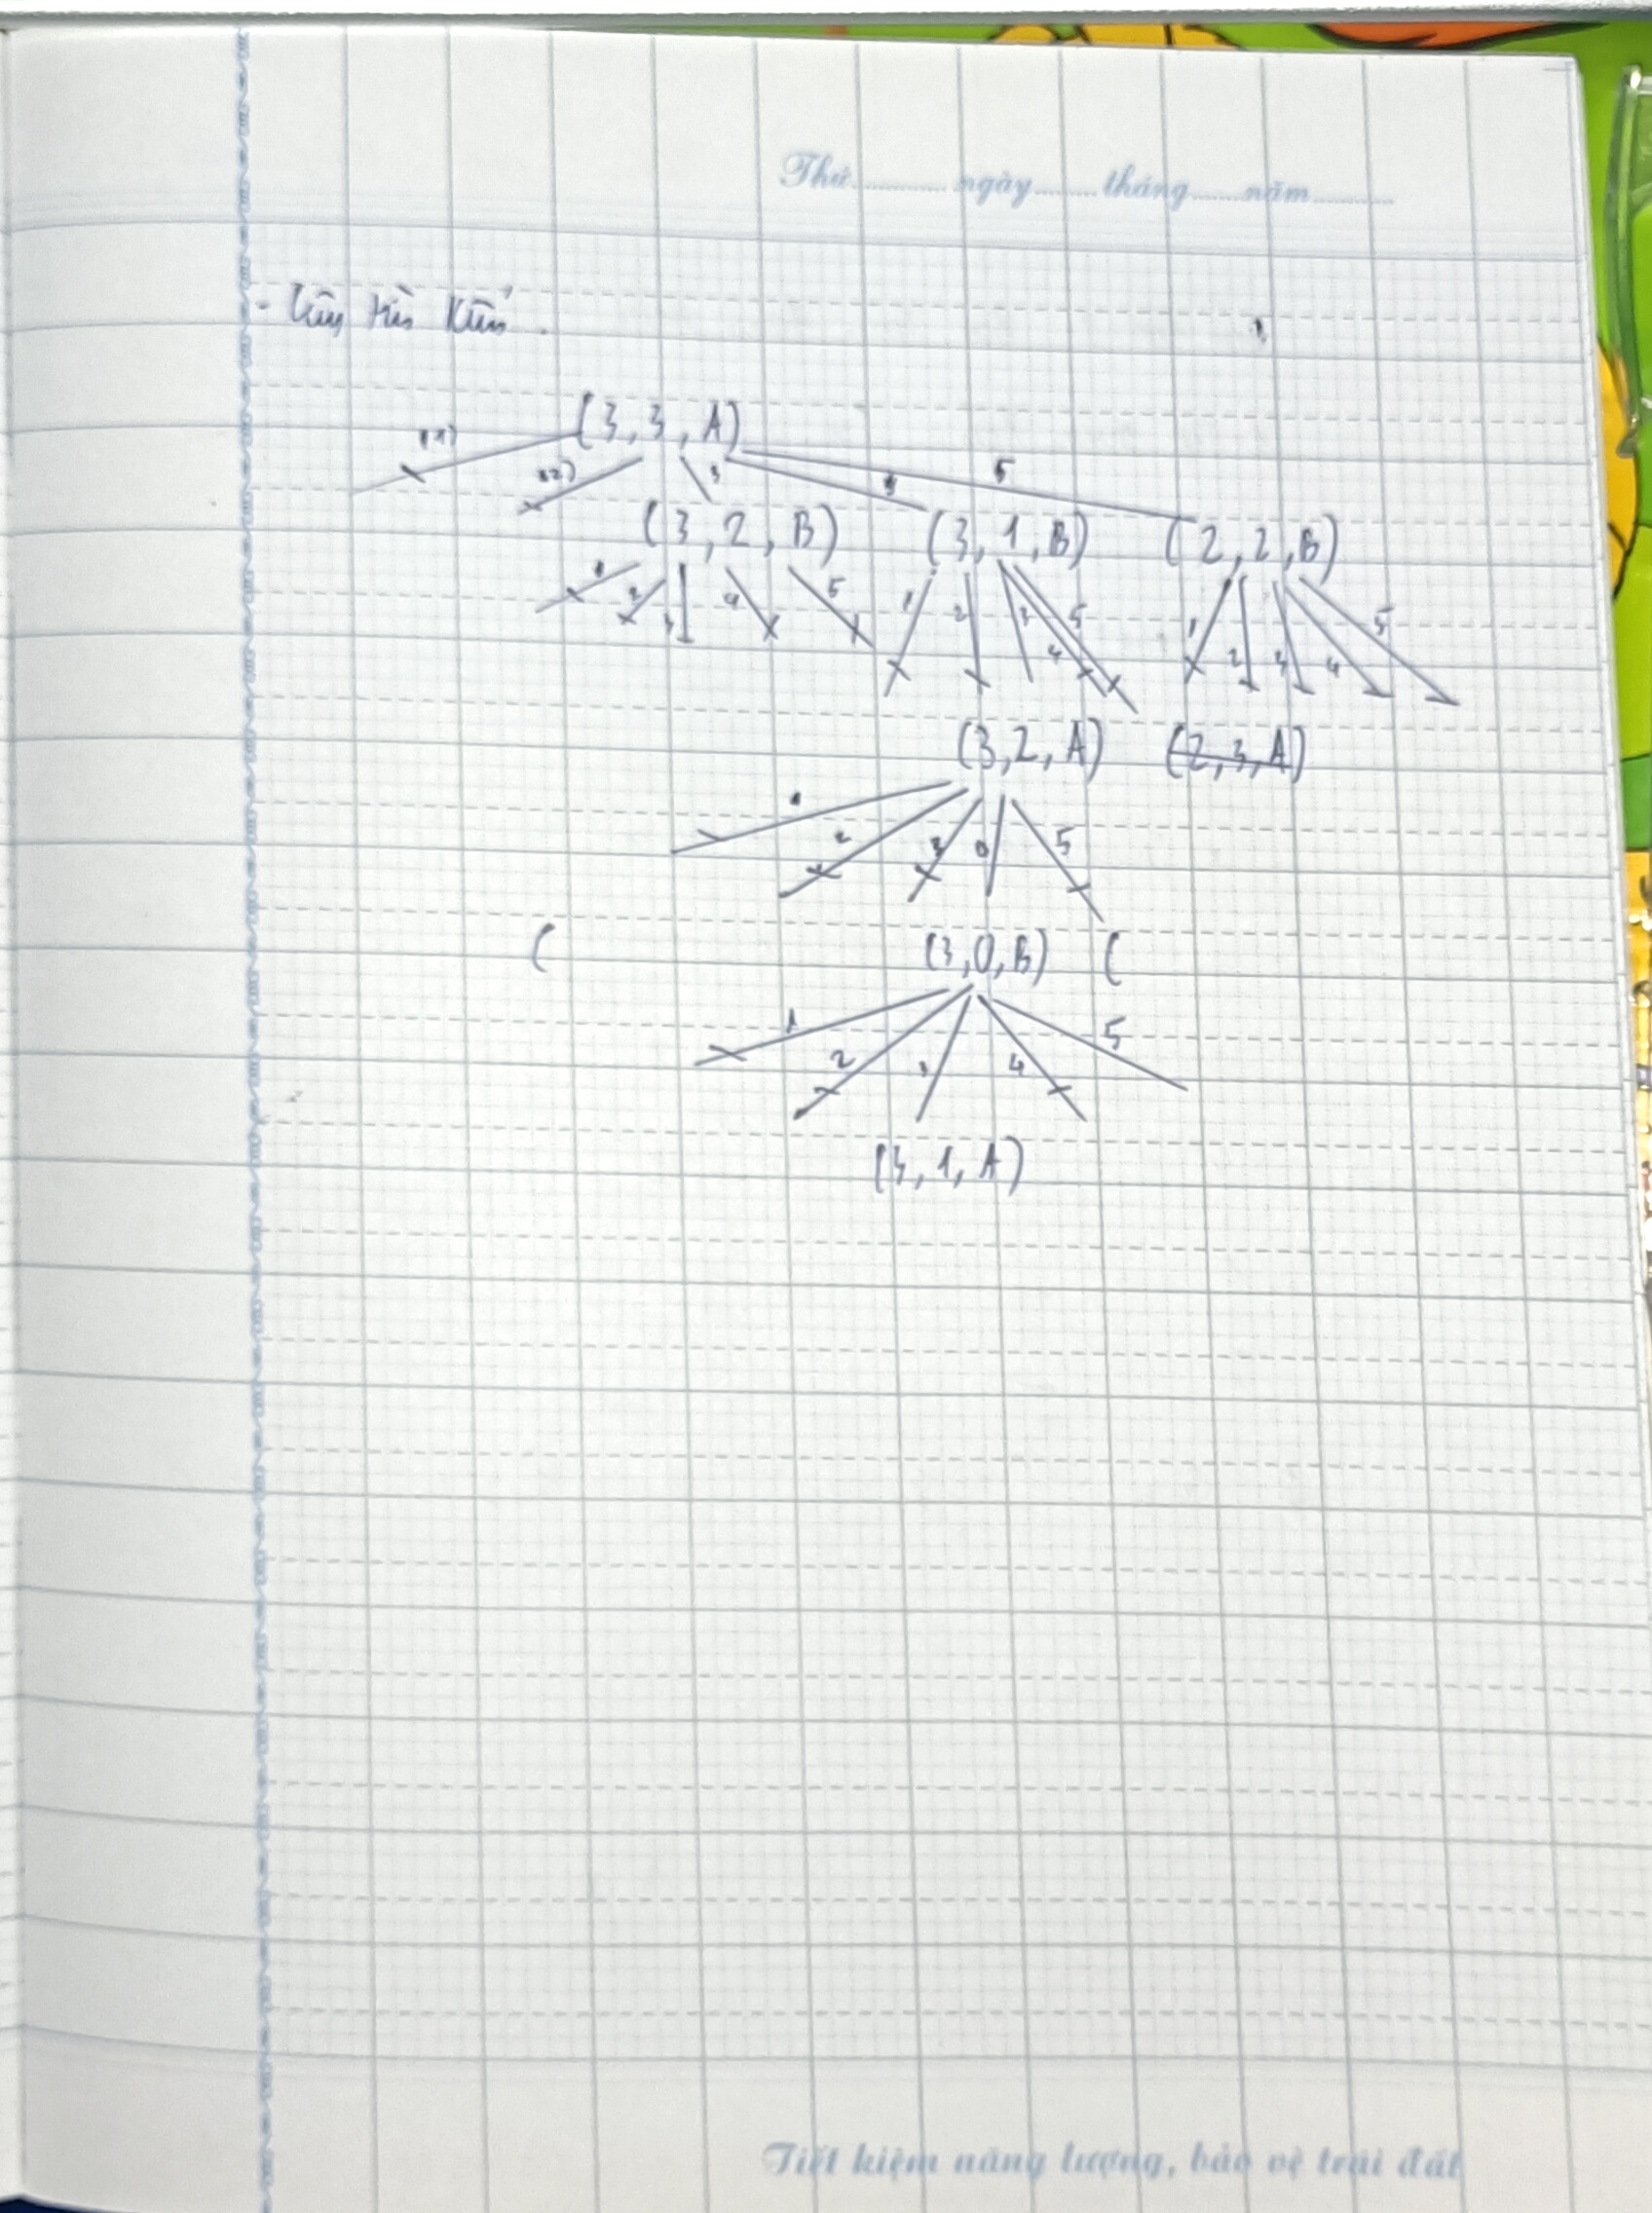 Thứ ngày tháng năm
- Cây tìm kiếm .
(3, 3, A)
(1) (2) 3 4 5
(3, 2, B) (3, 1, B) (2, 2, B)
1 2 3 4 5 1 2 3 4 5 1 2 3 4 5
(3, 2, A) (2, 3, A)
1 2 3 4 5
( (3, 0, B) (
1 2 3 4 5
(3, 1, A)
Tiết kiệm năng lượng, bảo vệ trái đất